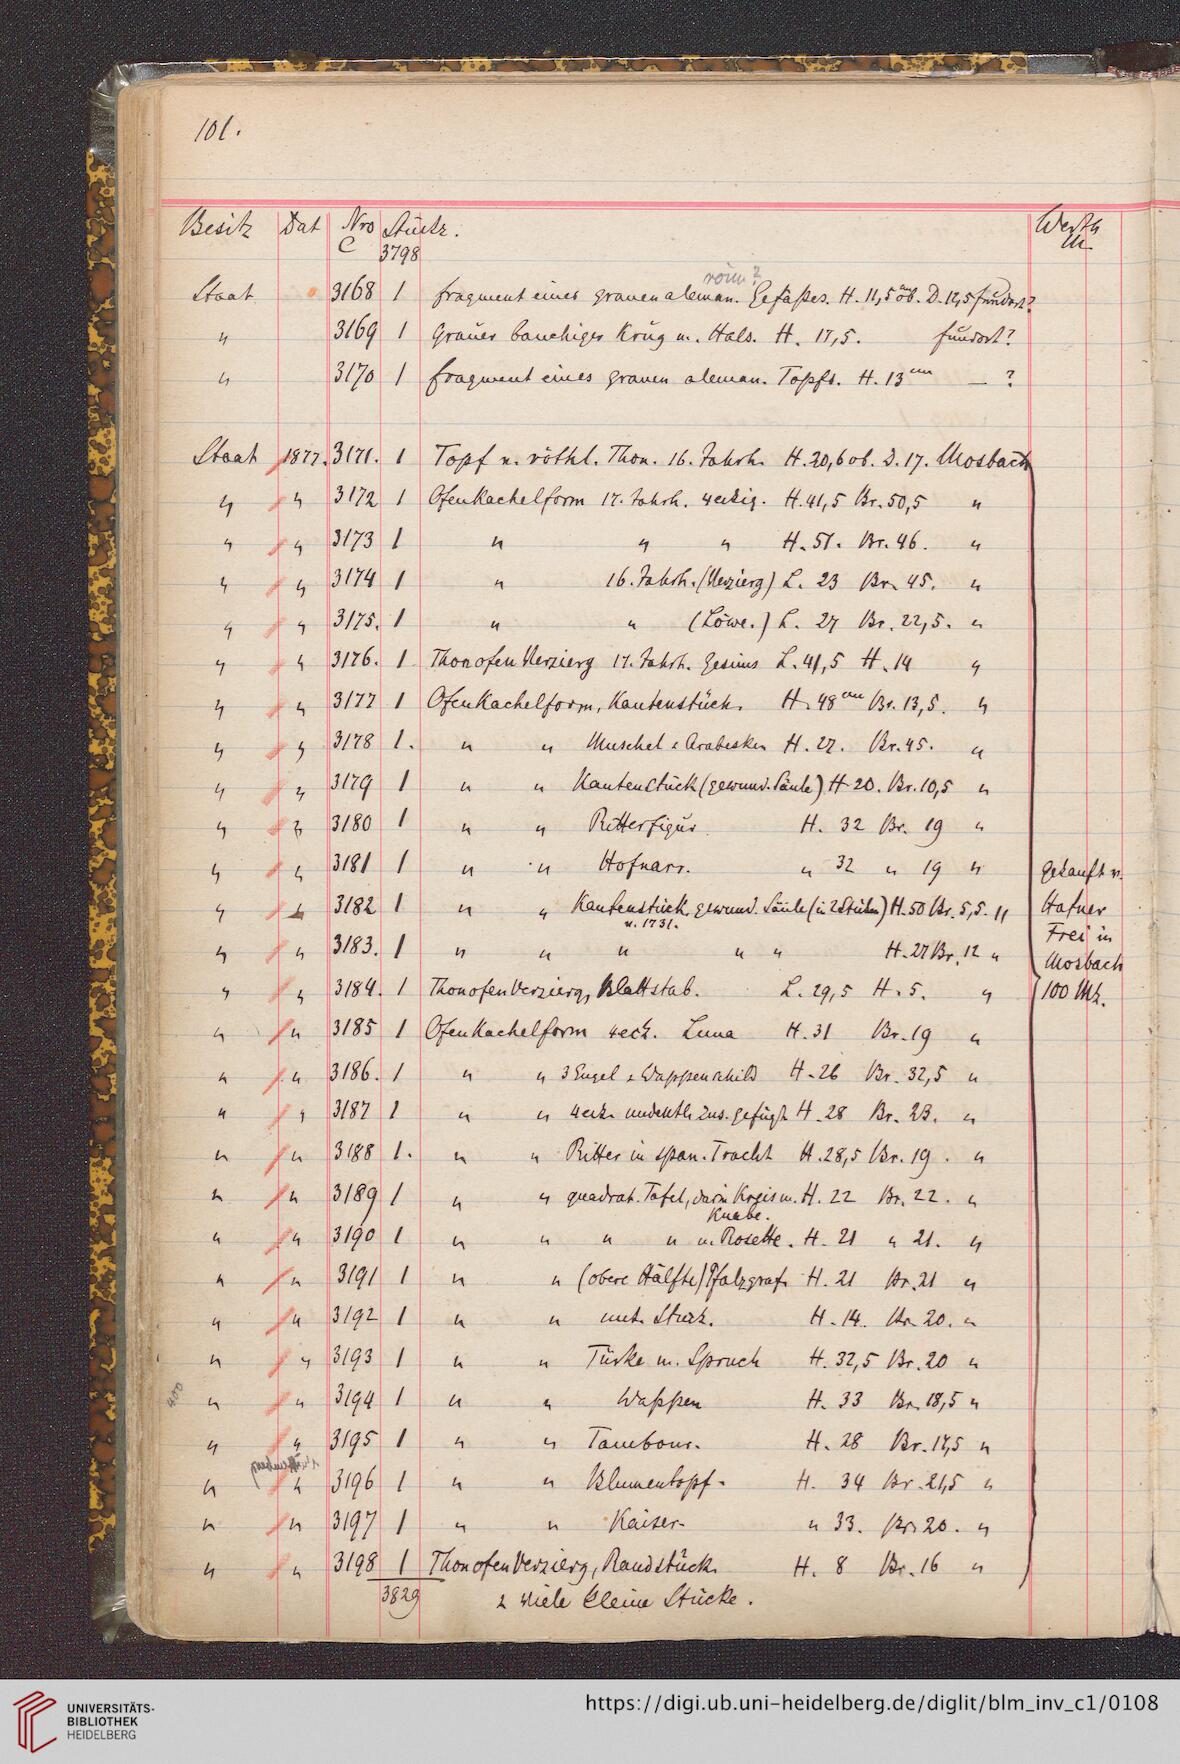 101.
Besitz Dat Nro Stückz. Werth
C 3798 M.
röm?
Staat 3168 1 fragment eines grauen aleman. Gefäßes. H. 11,5 ob. D. 12,5 fundort?
" 3169 1 Grauer bauchiger Krug m. Hals. H. 17,5. fundort?
" 3170 1 fragment eines grauen aleman. Topfs. H. 13 cm — ?
Staat 1877. 3171. 1 Topf v. röthl. Thon. 16. Jahrh. H. 20,6 ob. D. 17. Mosbach
" " 3172 1 Ofenkachelform 17. Jahrh. 4eckig. H. 41,5 Br. 50,5 "
" " 3173 1 " " " H. 51. Br. 46. "
" " 3174 1 " 16. Jahrh. (Verzierg) L. 23 Br. 45. "
" " 3175. 1 " " (Löwe.) L. 27 Br. 22,5. "
" " 3176. 1 Thonofen Verzierg 17. Jahrh. Gesims L. 41,5 H. 14 "
" " 3177 1 Ofenkachelform, Kantenstück. H. 48 cm Br. 13,5. "
" " 3178 1. " " Muschel & Arabesken H. 27. Br. 45. "
" " 3179 1 " " Kantenstück (gewund. Säule) H 20. Br. 10,5 "
" " 3180 1 " " Ritterfigur H. 32 Br. 19 "
" " 3181 1 " " Hofnarr. " 32 " 19 " gekauft v.
" " 3182 1 " " Kantenstück gewund. Säule (in 2 Stücken) H. 50 Br. 5,5. " Hafner
v. 1731. Frei in
" " 3183. 1 " " " " " H. 27 Br. 12 " Mosbach
" " 3184. 1 Thonofen Verzierg, Blattstab. L. 29,5 H. 5. " 100 Mk.
" " 3185 1 Ofenkachelform 4eck. Luna H. 31 Br. 19 "
" " 3186. 1 " " 3 Engel & Wappenschild H. 26 Br. 32,5 "
" " 3187 1 " " 4eck. undeutl. zus. gefügt H. 28 Br. 23. "
" " 3188 1. " " Ritter in span. Tracht H. 28,5 Br. 19. "
" " 3189 1 " " quadrat. Tafel, darin Kreis m. H. 22 Br. 22. "
Knabe.
" " 3190 1 " " " " m. Rosette. H. 21 " 21. "
" " 3191 1 " " (obere Hälfte) Pfalzgraf. H. 21 Br. 21 "
" " 3192 1 " " unt. Stück. H. 14. Br. 20. "
" " 3193 1 " " Türke m. Spruch H. 32,5 Br. 20 "
400 " " 3194 1 " " Wappen H. 33 Br. 18,5 "
" " 3195 1 " " Tambour. H. 28 Br. 17,5 "
" " 3196 1 " " Blumentopf. H. 34 Br. 21,5 "
" " 3197 1 " " Kaiser. " 33. Br. 20. "
" " 3198 1 Thonofen Verzierg, Randstück. H. 8 Br. 16 "
3829 & viele kleine Stücke.
UNIVERSITÄTS-
BIBLIOTHEK
HEIDELBERG
https://digi.ub.uni-heidelberg.de/diglit/blm_inv_c1/0108